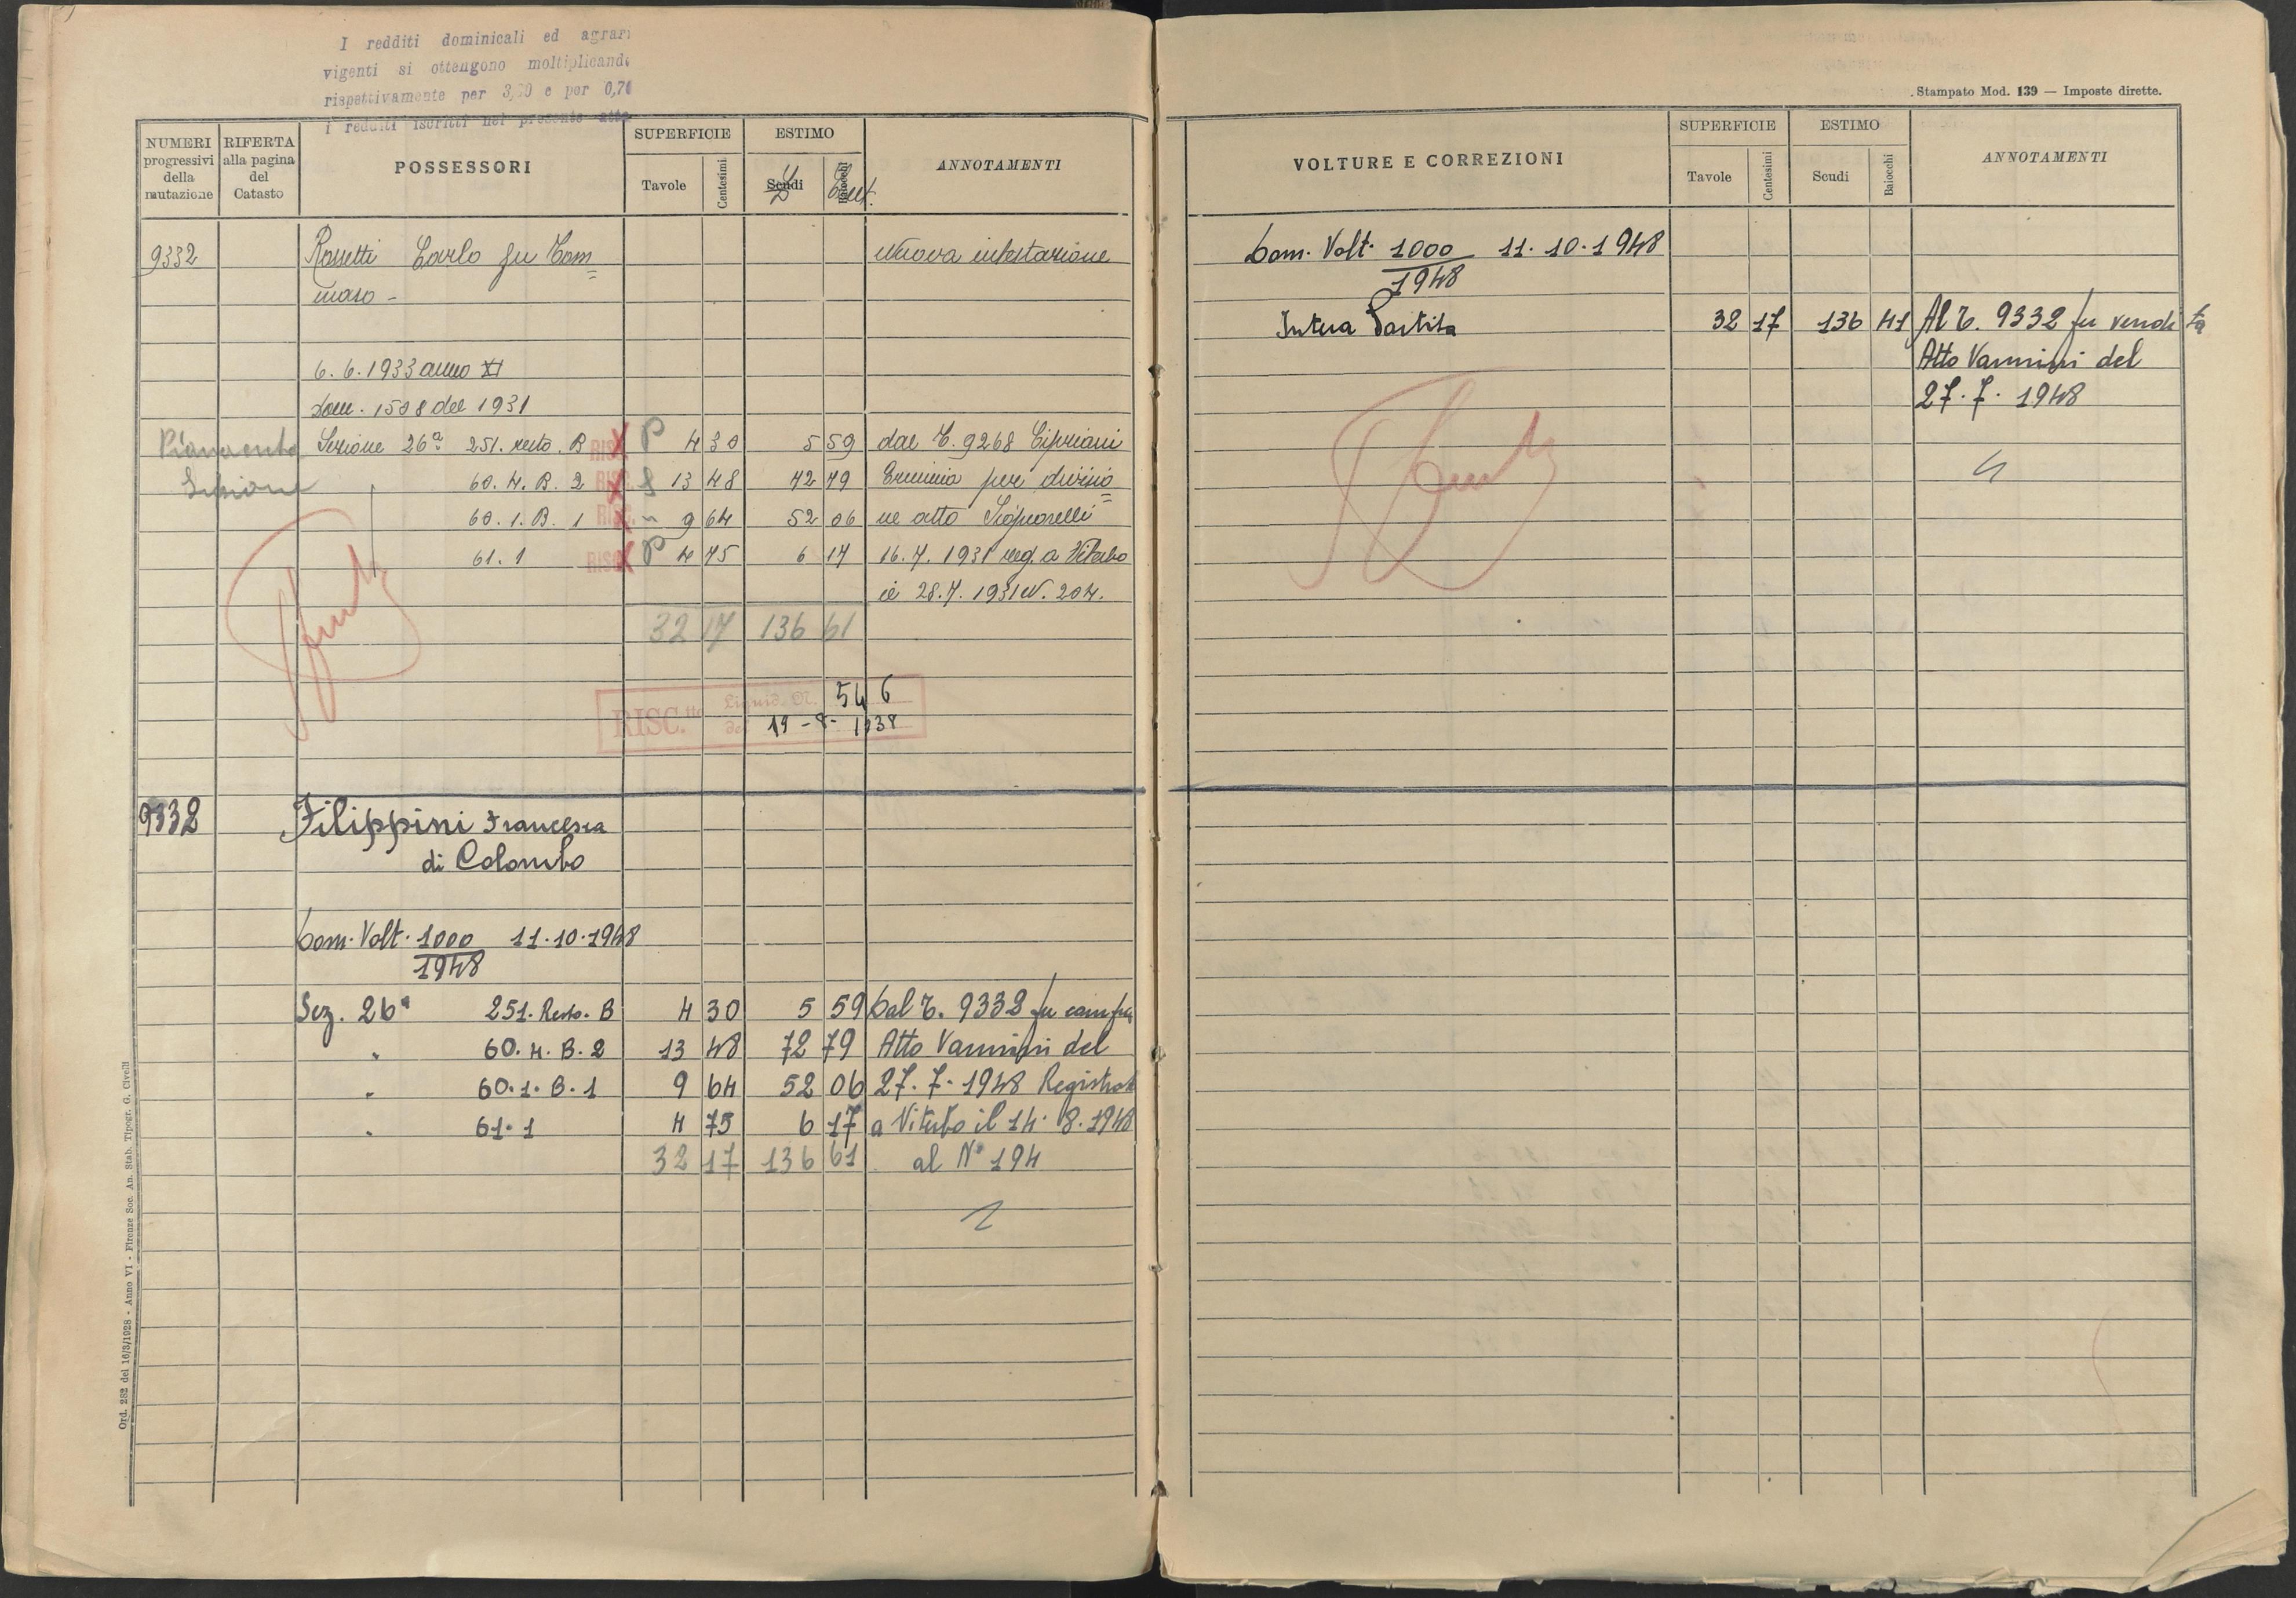 I redditi dominicali ed agrari
vigenti si ottengono moltiplicando
rispettivamente per e per 0,70
i redditi iscritti nel presente atto
NUMERI progressivi della mutazione
RIFERTA alla pagina del Catasto
POSSESSORI
SUPERFICIE
Tavole
Centesimi
ESTIMO
Scudi
Baiocchi
Cent.
ANNOTAMENTI
9332 Rosetti Carlo fu Tom= Nuova intestazione
maso -
6.6.1933 anno XI
Dom. 1508 del 1931
Sezione 26ª 251. resto. B RIS P 4 30 5 59 dal T. 9268 Cipriani
60.4.B.2 RIS 13 48 72 79 Erminia per divisio=
60.1.B.1 RIS " 9 64 52 06 ne atto Signorelli
61.1 RIS P 4 75 6 17 16.7.1931 reg. a Viterbo
il 28.7.1931 N. 204.
32 17 136 61
RISC.tto Liquid. N. 546
del 19-8-1938
9332 Filippini Francesca
di Colombo
Dom. Volt. 1000/1948 11.10.1948
Sez. 26ª 251. Resto. B 4 30 5 59 Dal T. 9332 fu compra
" 60.4.B.2 13 48 72 79 Atto Vannini del
" 60.1.B.1 9 64 52 06 27.7.1948 Registrato
" 61.1 4 75 6 17 a Viterbo il 14.8.1948
32 17 136 61 al N° 194
Ord. 282 del 16/3/1928 - Anno VI - Firenze Soc. An. Stab. Tipogr. G. Civelli
Stampato Mod. 139 — Imposte dirette.
VOLTURE E CORREZIONI
SUPERFICIE
Tavole
Centesimi
ESTIMO
Scudi
Baiocchi
ANNOTAMENTI
Dom. Volt. 1000/1948 11.10.1948
Intera Partita 32 17 136 41 Al T. 9332 fu vendita
Atto Vannini del
27.7.1948